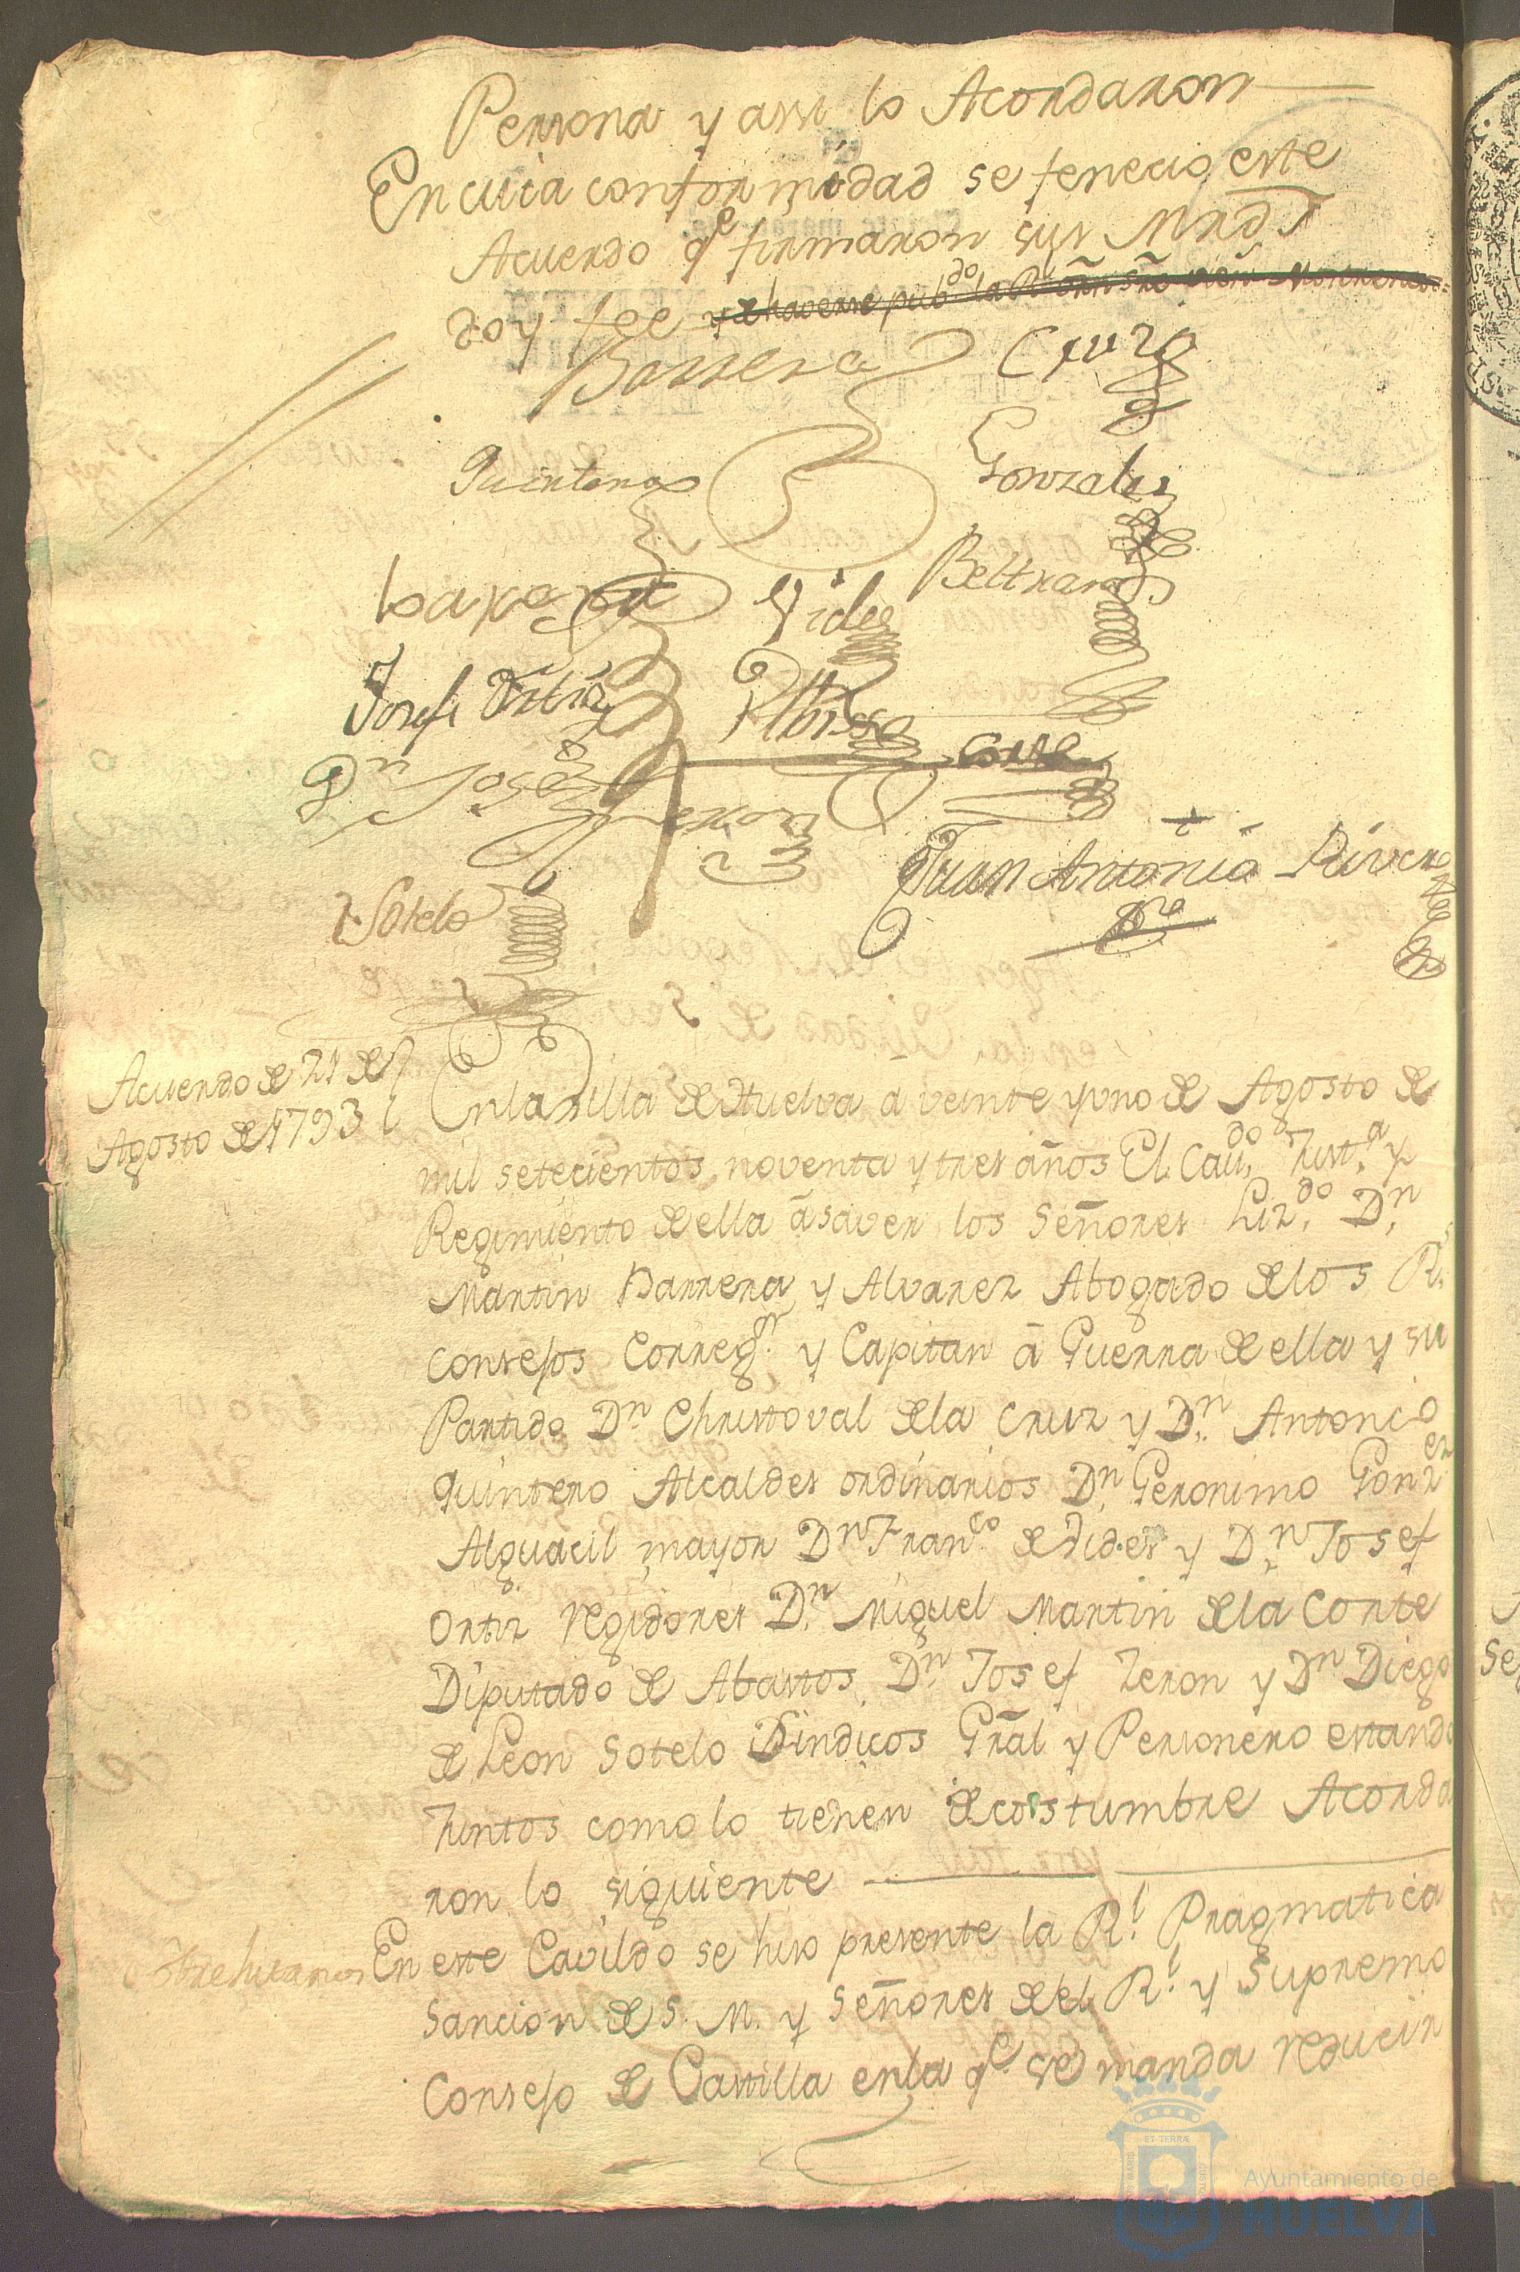 Persona y assi lo Acordaron
En cuia conformidad se fenecio este
Acuerdo qe firmaron sus Mrds
doy fee y de haverse pubdo la Rl orñ sre
Barrera Cruz
Quintero Gonzales
Beltran
Vides
Josef Ortiz
Corte
Dn Josef
Zeron
Juan Antonio Rivera
Sotelo
Acuerdo de 21 de
Agosto de 1793
En la Villa de Huelva á veinte y uno de Agosto de
mil setecientos noventa y tres años El Cavdo Justa y
Regimiento de ella á saver los Señores Lizdo Dn
Martin Barrera y Alvarez Abogado de los Rs
Consejos Corregor y Capitan á Guerra de ella y su
Partido Dn Christoval de la Cruz y Dn Antonio
Quintero Alcaldes ordinarios Dn Geronimo Gonzez
Alguacil mayor Dn Franco de Vides y Dn Josef
Ortiz regidores Dn Miguel Martin de la Corte
Diputado de Abastos, Dn Josef Zeron y Dn Diego
de Leon Sotelo Sindicos Gral y Personero estando
Juntos como lo tienen de costumbre Acorda
ron lo siguiente
En este Cavildo se hiso presente la Rl Pragmatica
Sancion de S. M. y Señores del Rl y Supremo
Consejo de Castilla en la qe se manda reducir
ET TERRÆ
Ayuntamiento de
HUELVA